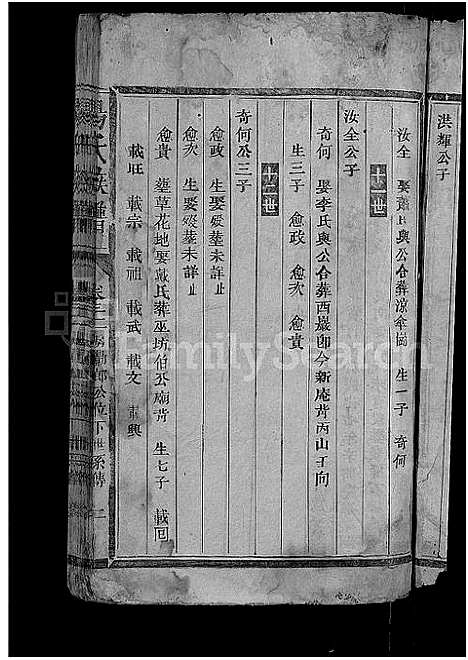 洪輝公子
汝全 娶蕭氏與公合葬涼傘崗 生一子 奇何
十一世
汝全公子
奇何 娶李氏與公合葬西巖卽今新庵背丙山壬向
生三子 愈政 愈次 愈貴
十二世
奇何公三子
愈政 生娶歿葬未詳止
愈次 生娶歿葬未詳止
愈貴 葬草花地娶戴氏葬巫坊伯公廟背 生七子 載囘
載旺 載宗 載祖 載武 載文 載興
氏族譜
卷十二 公位下世系傳 二
FamilySearch